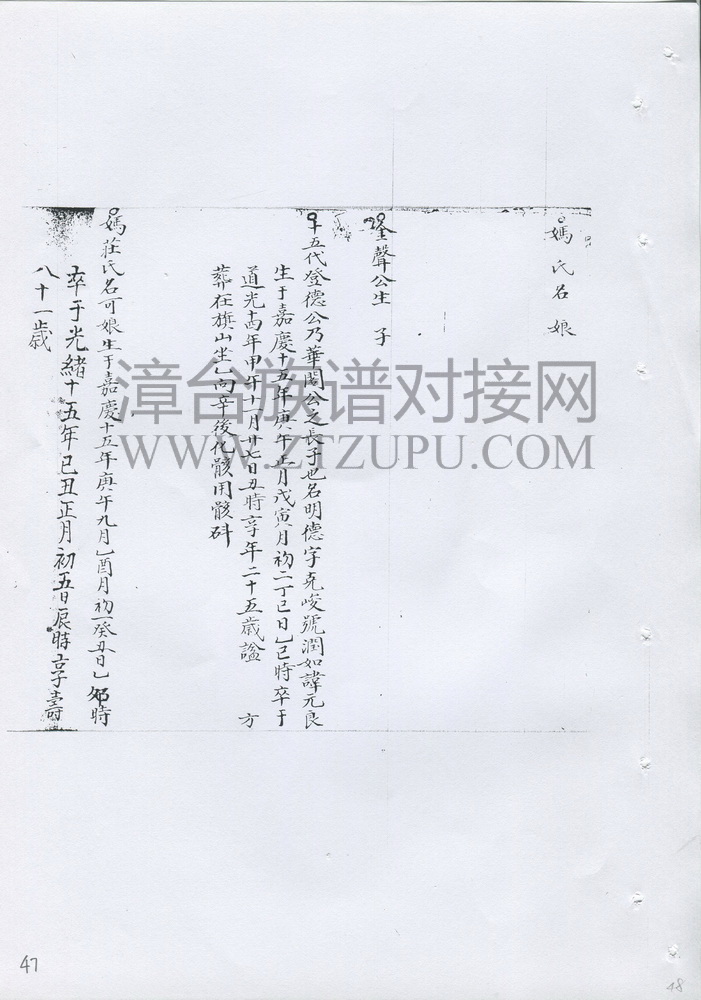 媽氏名 娘
荃聲公生 子
十五代登德公乃華閣公之長子也名明德字克峻號潤如諱元良
生于嘉慶十五年庚午正月戊寅月初二丁巳日乙巳時卒于
道光十四年甲午十一月廿七日丑時享年二十五歲諡 方
葬在旗山坐乙向辛後化骸用骸砵
媽莊氏名可娘生于嘉慶十五年庚午九月乙酉月初一癸丑日乙卯時
卒于光緒十五年己丑正月初五日辰時享壽
八十一歲
漳台族谱对接网
WWW.ZTZUPU.COM
47
48